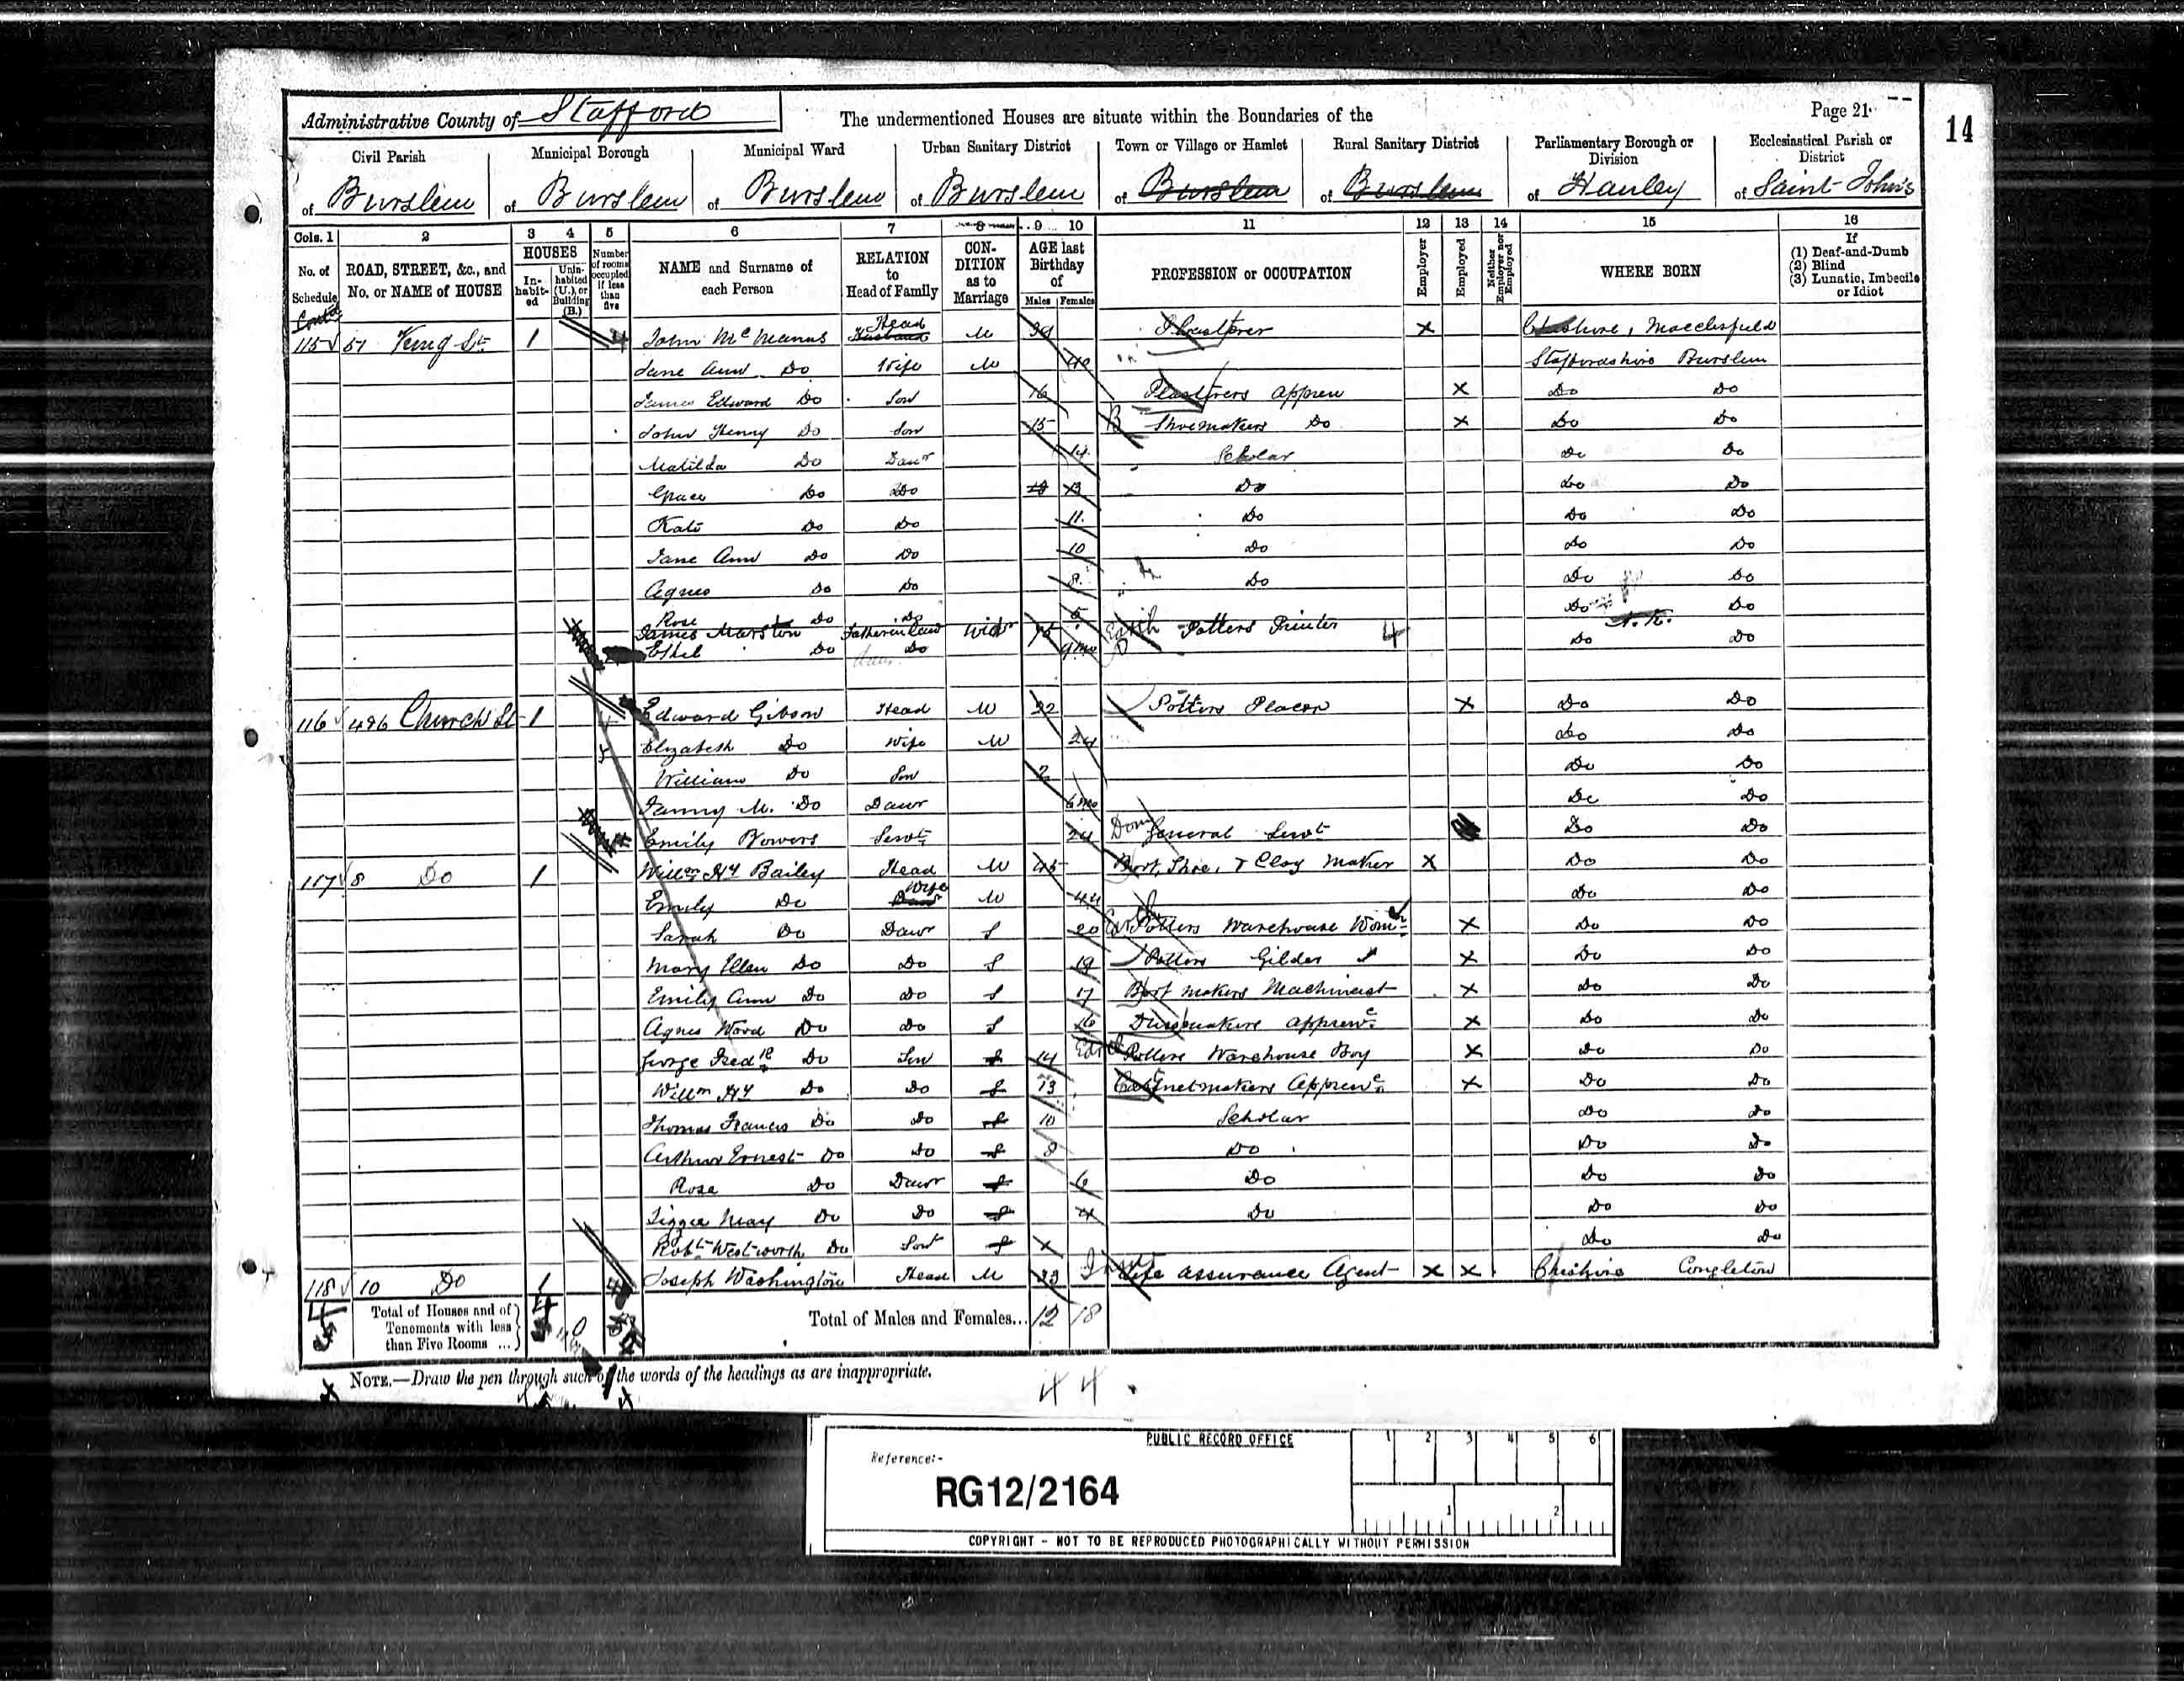 Administrative County of Stafford The undermentioned Houses are situate within the Boundaries of the Page 21
14
Civil Parish Municipal Borough Municipal Ward Urban Sanitary District Town or Village or Hamlet Rural Sanitary District Parliamentary Borough or Division Ecclesiastical Parish or District
of Burslem of Burslem of Burslem of Burslem of Burslem of Burslem of Hanley of Saint John's
Cols. 1 2 3 4 5 6 7 8 9 10 11 12 13 14 15 16
No. of Schedule ROAD, STREET, &c., and No. or NAME of HOUSE HOUSES In-habit-ed Unin-habited (U.), or Building (B.) Number of rooms occupied if less than five NAME and Surname of each Person RELATION to Head of Family CON-DITION as to Marriage AGE last Birthday of Males Females PROFESSION or OCCUPATION Employer Employed Neither Employer nor Employed WHERE BORN If (1) Deaf-and-Dumb (2) Blind (3) Lunatic, Imbecile or Idiot
Contd
115 51 King St 1 4 John McManus Head Husband M 39 Plasterer X Cheshire, Macclesfield
Jane Ann Do Wife M 40 Staffordshire Burslem
James Edward Do Son 16 Plasterers Appren X Do Do
John Henry Do Son 15 Shoemakers Do X Do Do
Matilda Do Daur 14 Scholar Do Do
Grace Do Do 13 Do Do Do
Kate Do Do 11 Do Do Do
Jane Ann Do Do 10 Do Do Do
Agnes Do Do 8 Do Do Do
Rose Do Do 5 Do Do
James Marston Father in Law Widr 75 Potters Printer 4 N.K.
Ethel Do Do 9 mo Do Do
116 496 Church St 1 Edward Gibson Head M 22 Potters Placer X Do Do
Elizabeth Do Wife M 24 Do Do
William Do Son 2 Do Do
Fanny M. Do Daur 6 mo Do Do
Emily Bowers Servt 24 Dom General Servt Do Do
117 8 Do 1 Willm Hy Bailey Head M 45 Boot, Shoe, & Clog Maker X Do Do
Emily Do Wife Daur M 44 Do Do
Sarah Do Daur S 20 Potters Warehouse Wom X Do Do
Mary Ellen Do Do S 19 Potters Gilder X Do Do
Emily Ann Do Do S 17 Boot makers Machinist X Do Do
Agnes Ward Do Do S 16 Dressmakers Apprence X Do Do
George Fredk Do Son S 14 Potters Warehouse Boy X Do Do
Willm Hy Do Do S 13 Cabinetmakers Apprence X Do Do
Thomas Francis Do Do S 10 Scholar Do Do
Arthur Ernest Do Do S 8 Do Do Do
Rose Do Daur S 6 Do Do Do
Lizzie May Do Do S 4 Do Do Do
Robt Westworth Do Son S Do Do
118 10 Do 1 4 Joseph Washington Head M 33 Life Assurance Agent X X Cheshire Congleton
Total of Houses and of Tenements with less than Five Rooms ... 4 0 Total of Males and Females... 12 18
NOTE.—Draw the pen through such of the words of the headings as are inappropriate.
44
PUBLIC RECORD OFFICE
1 2 3 4 5 6
Reference:-
RG12/2164
1 2
COPYRIGHT - NOT TO BE REPRODUCED PHOTOGRAPHICALLY WITHOUT PERMISSION